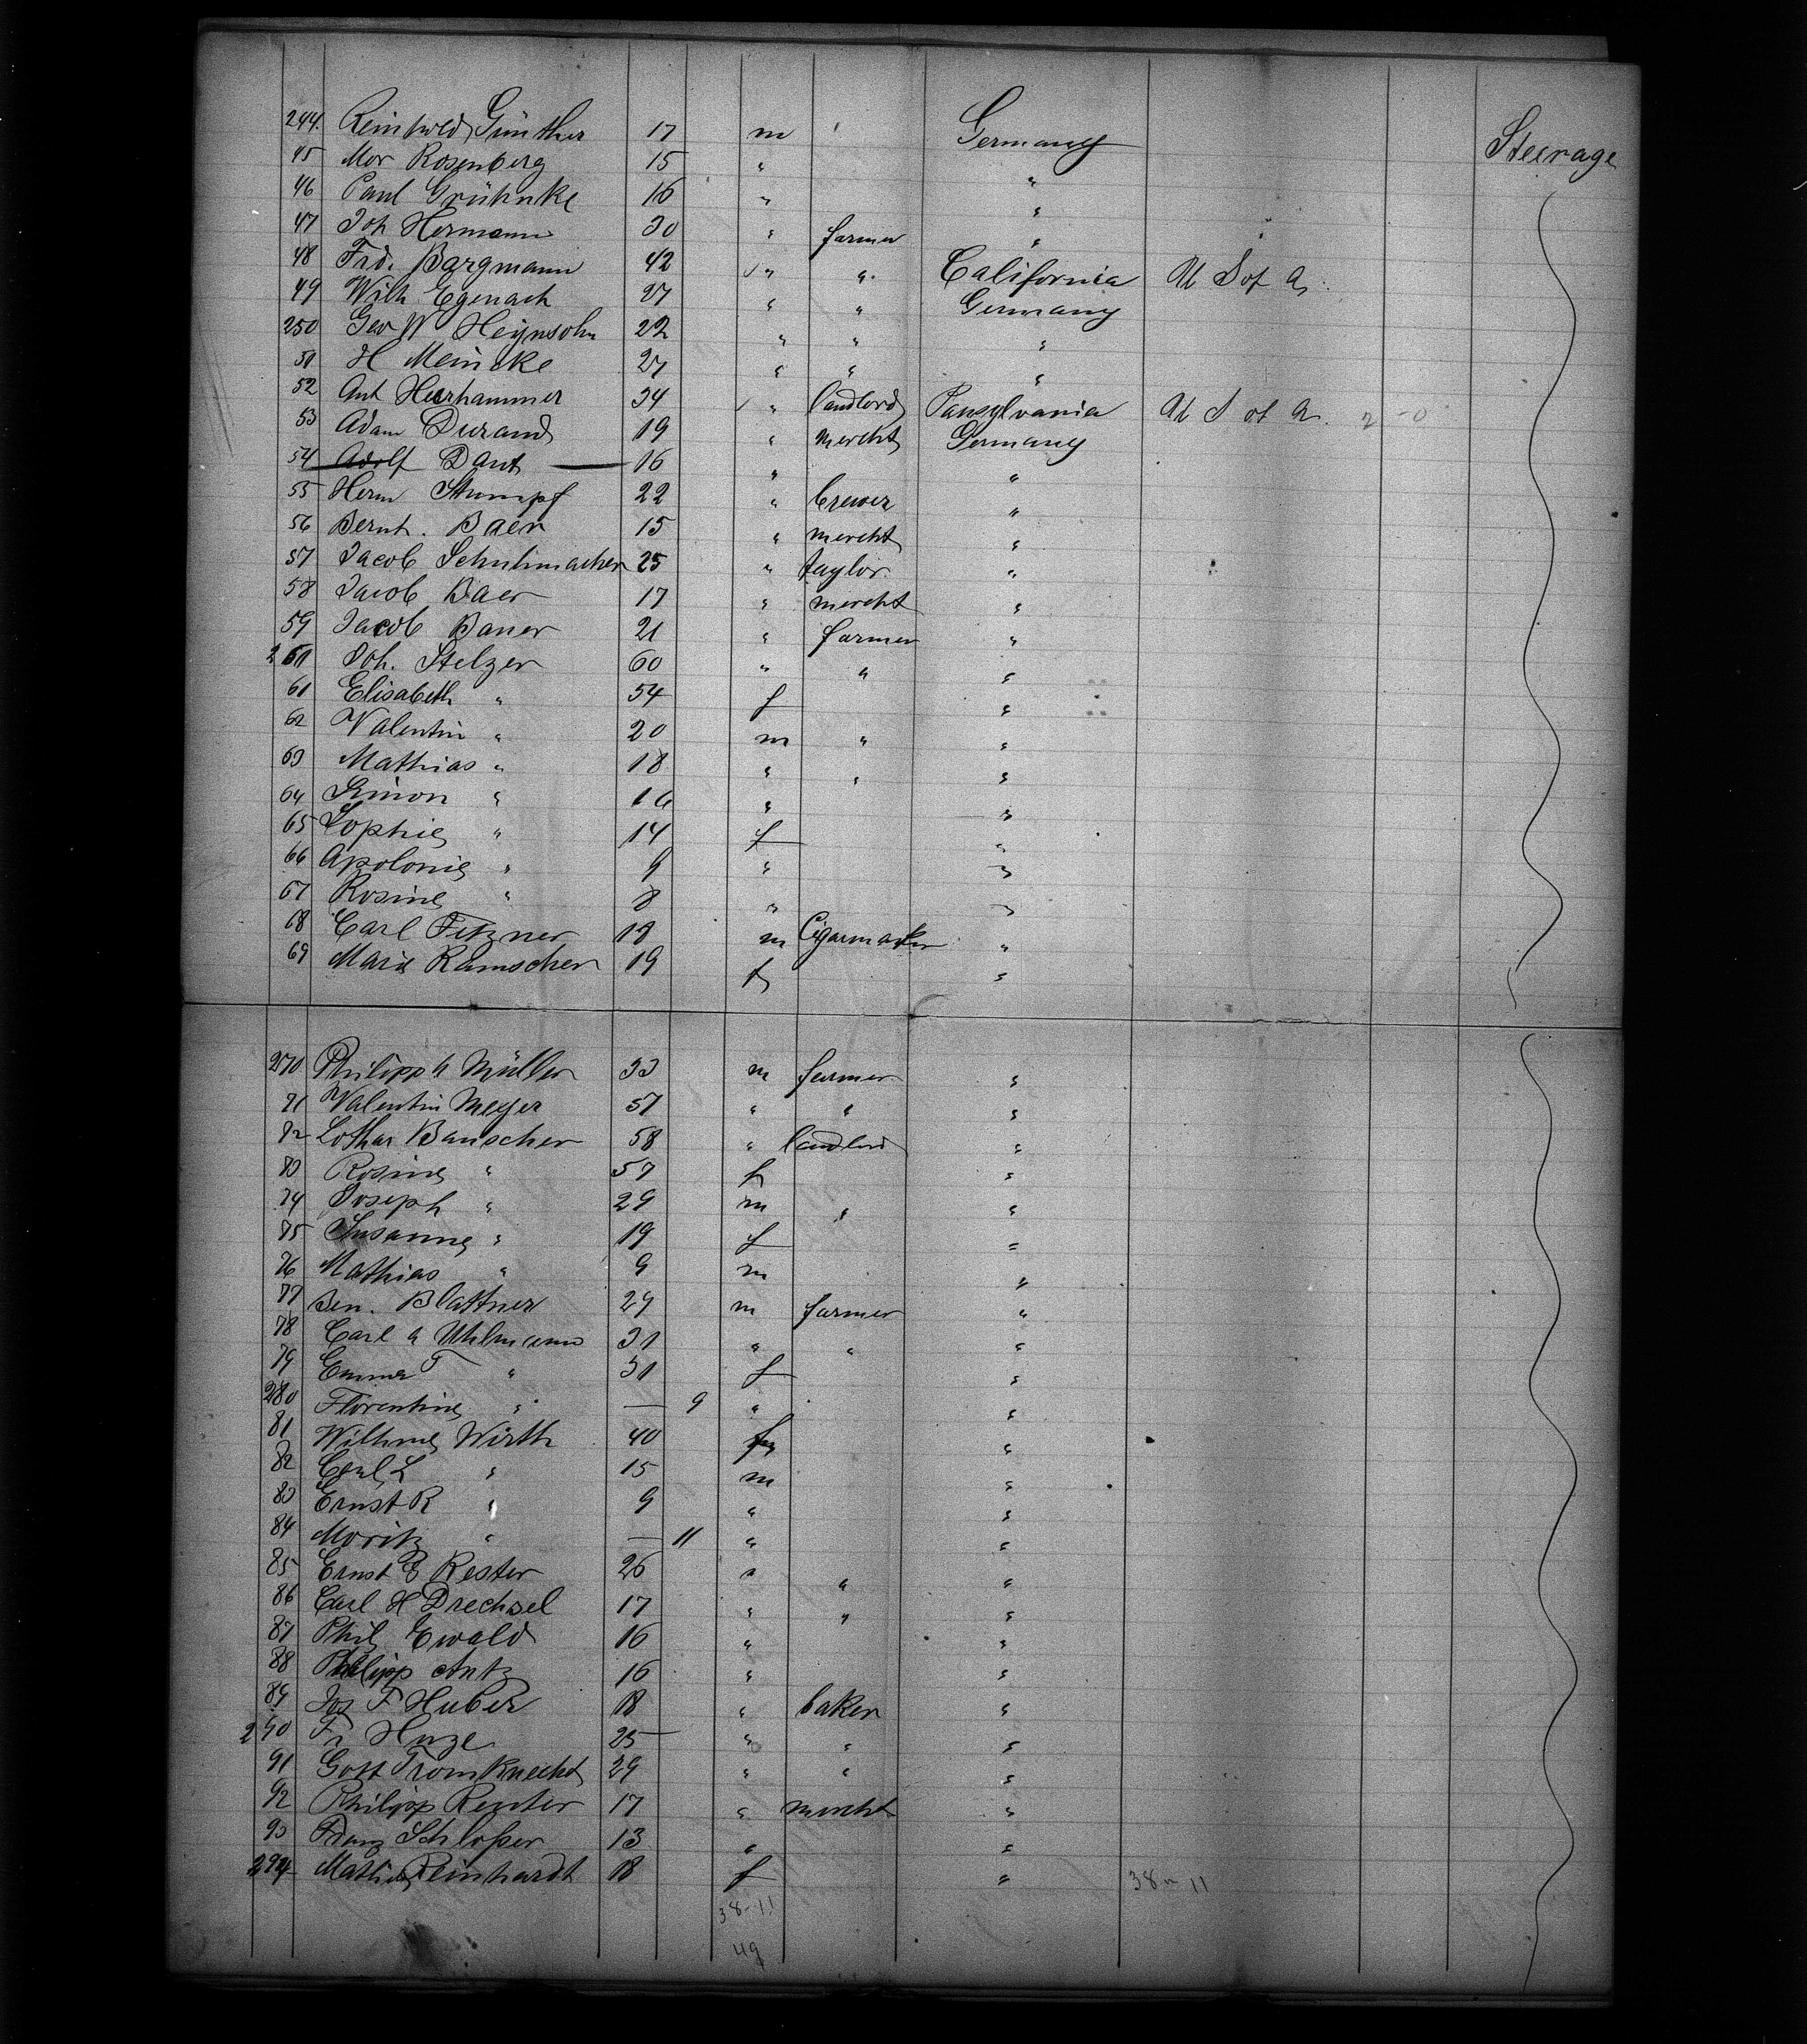 244. Reinhold Günther 17 m Germany Steerage
45 Mor Rosenberg 15 " "
46 Paul Grühnke 16 " "
47 Joh Hermann 30 " farmer "
48 Frd. Bargmann 42 " " California U S of A.
49 Wilh Egenach 27 " " Germany
250 Geo W Heynsohn 22 " " "
51 H Meincke 27 " " "
52 Ant Heerhammer 34 " landlord Pansylvania U S of A. 2 - 0
53 Adam Durand 19 " mercht Germany
54 Adolf Dant 16 " "
55 Herm Stumpf 22 " brewer "
56 Bernh. Baer 15 " mercht "
57 Jacob Schuhmacher 25 " taylor "
58 Jacob Baer 17 " mercht "
59 Jacob Bauer 21 " farmer "
260 Joh. Stelzer 60 " " "
61 Elisabeth " 54 f "
62 Valentin " 20 m " "
63 Mathias " 18 " " "
64 Simon " 16 " "
65 Sophie " 14 f "
66 Apolonie " 9 " "
67 Rosine " 8 " "
68 Carl Fitzner 18 m Cigarmaker "
69 Marie Ramscher 19 f "
270 Philipp h Müller 33 m farmer "
71 Valentin Meyer 57 " " "
72 Lothar Bauscher 58 " landlord "
73 Rosine " 57 f "
74 Joseph " 29 m " "
75 Susanne " 19 f "
76 Mathias " 9 m "
77 Ben. Blattner 27 m farmer "
78 Carl A Uhlmann 31 " " "
79 Emma F " 31 f "
280 Florentine " — 9 " "
81 Wilhme Wirth 40 f "
82 Carl L " 15 m "
83 Ernst R " 9 " "
84 Moritz " — 11 " "
85 Ernst E Rester 26 " " "
86 Carl H Drechsel 17 " " "
87 Phil Ewald 16 " "
88 Philipp Antz 16 " "
89 Jos F Huber 18 " baker "
290 Fr Huze 25 " " "
91 Gott Fromknecht 29 " " "
92 Philipp Reuter 17 " mercht "
93 Franz Schloßer 13 " "
294 Reinhardt 18 f " 38 11
38-11
49